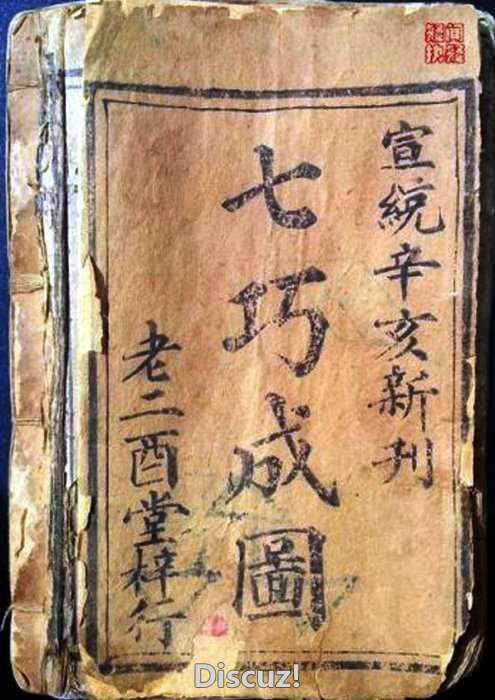 宣統辛亥新刊
七巧成圖
老二酉堂梓行
Discuz!